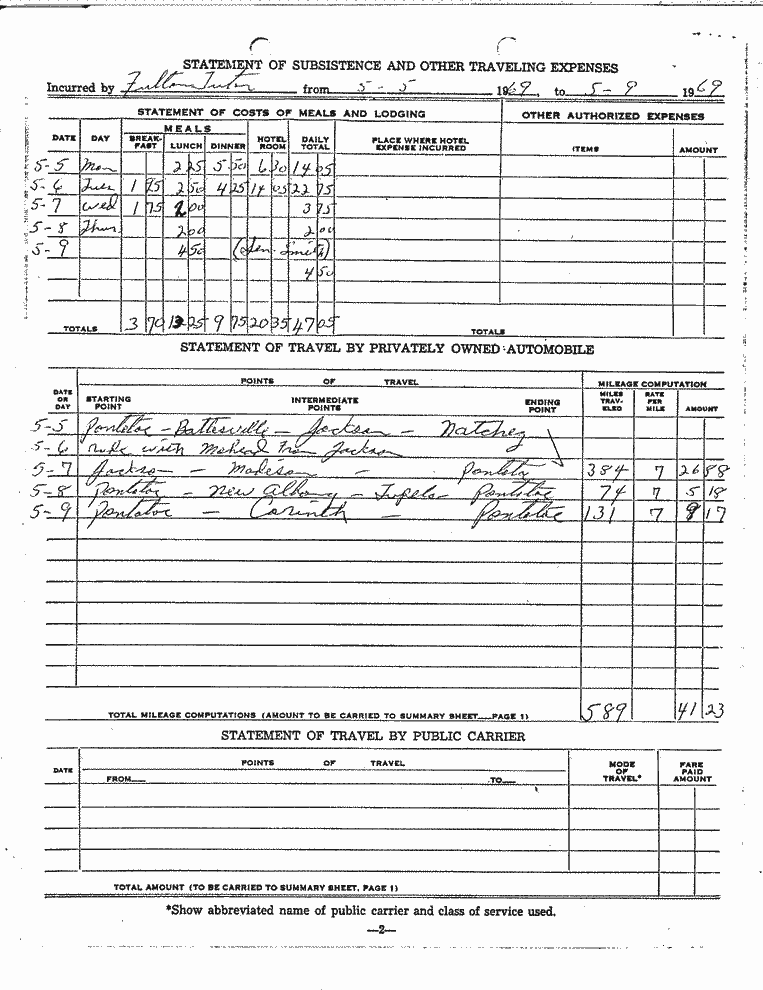 STATEMENT OF SUBSISTENCE AND OTHER TRAVELING EXPENSES
Incurred by Fulton Tutor from 5-5 1969, to 5-9 1969
STATEMENT OF COSTS OF MEALS AND LODGING OTHER AUTHORIZED EXPENSES
MEALS
DATE DAY BREAK-FAST LUNCH DINNER HOTEL ROOM DAILY TOTAL PLACE WHERE HOTEL EXPENSE INCURRED ITEMS AMOUNT
5-5 Mon 2 25 5 50 6 30 14 05
5-6 Tues 1 95 2 50 4 25 14 05 22 75
5-7 Wed 1 75 2 00 3 75
5-8 Thur 2 00 2 00
5-9 4 50 (Sen. Smith)
4 50
TOTALS 3 70 13 25 9 75 20 35 47 05 TOTALS
STATEMENT OF TRAVEL BY PRIVATELY OWNED AUTOMOBILE
POINTS OF TRAVEL MILEAGE COMPUTATION
DATE OR DAY STARTING POINT INTERMEDIATE POINTS ENDING POINT MILES TRAV-ELED RATE PER MILE AMOUNT
5-5 Pontotoc - Batesville - Jackson - Natchez
5-6 ride with from Jackson
5-7 Jackson - Madison - Pontotoc 384 7 26 88
5-8 Pontotoc - New Albany - Tupelo - Pontotoc 74 7 5 18
5-9 Pontotoc - Corinth - Pontotoc 131 7 9 17
TOTAL MILEAGE COMPUTATIONS (AMOUNT TO BE CARRIED TO SUMMARY SHEET PAGE 1) 589 41 23
STATEMENT OF TRAVEL BY PUBLIC CARRIER
DATE POINTS OF TRAVEL MODE OF TRAVEL* FARE PAID AMOUNT
FROM TO
TOTAL AMOUNT (TO BE CARRIED TO SUMMARY SHEET, PAGE 1)
*Show abbreviated name of public carrier and class of service used.
—2—